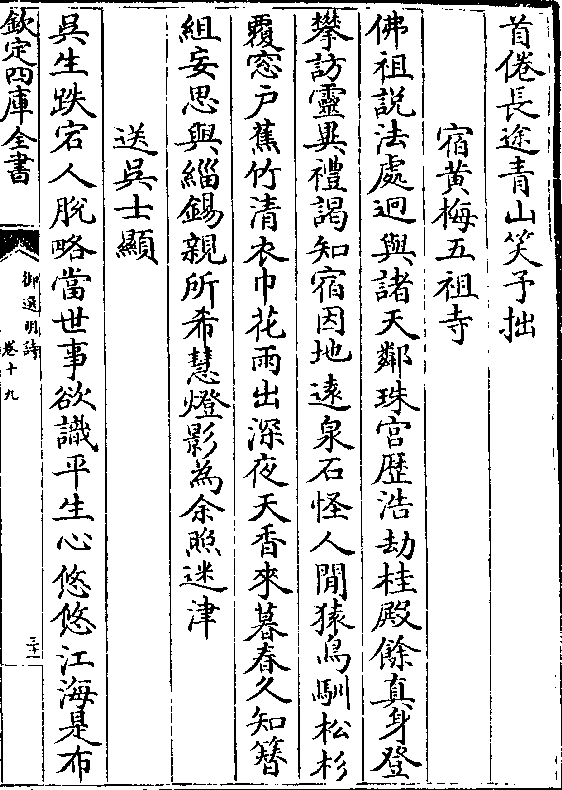 首倦長途青山笑予拙
宿黄梅五祖寺
佛祖説法處迥與諸天鄰珠宫歴浩劫桂殿餘真身登
攀訪靈異禮謁知宿因地遠泉石怪人閒猿鳥馴松杉
覆窓户蕉竹清衣巾花雨出深夜天香來暮春久知簪
組妄思與緇錫親所希慧燈影為余照迷津
送吳士顯
吳生跌宕人脱略當世事欲識平生心悠悠江海是布
欽定四庫全書
御選明詩
卷十九
三十一